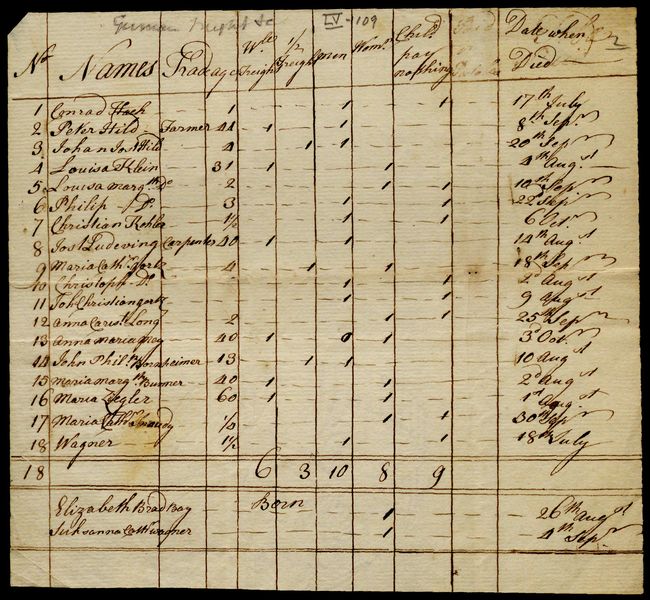 German Freight &c LV-109
No Names Trad age Wle Freight 1/2 Freight men Wom.n Child pay nothing Date when Died 2
1 Conrad 1 1 1 17th July
2 Peter Hild Farmer 44 1 1 8th Sepr
3 Johan Jost Hild 4 1 1 20th Sepr
4 Louisa Klein 31 1 1 4th Augst
5 Louisa margth Do 2 1 1 10th Sepr
6 Philip Do 3 1 1 22d Sepr
7 Christian Kohler 1/2 1 1 6 Octr
8 Jost Ludeving Carpenter 40 1 1 14th Augst
9 Maria Cathr gortz 4 1 1 18th Sepr
10 Christoph Do 1 1 2d Augst
11 Joh Christian gortz 1 1 9 Augst
12 anna Long 2 1 1 25th Sepr
13 Anna maria may 40 1 0 1 3d Octr
14 John Philp Bornheimer 13 1 1 10 Augst
15 maria margth Bunner 40 1 1 2d Augst
16 Maria Zegler 60 1 1 1st Augst
17 Maria Cathr 1/2 1 1 30th Sepr
18 Wagner 1 1/2 1 1 18th July
18 6 3 10 8 9
Born
Elizabeth Brad Bay 1 26th Augst
Suhsanna Cath wagner 1 4th Sepr